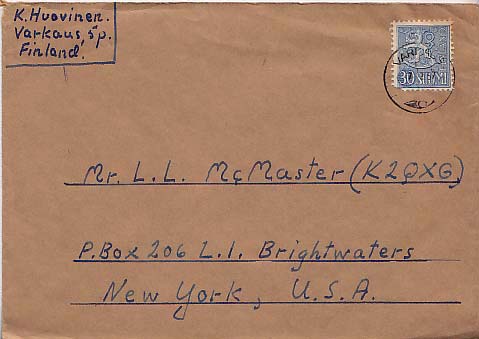 K. Huovinen.
Varkaus, 5p.
Finland.
30 SUOMI
Mr. L.L. McMaster (K2QXG)
P.Box 206 L.I. Brightwaters
New York, U.S.A.